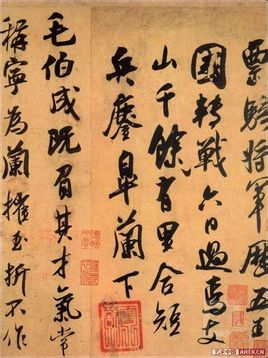 票騎將軍歷五王
國轉戰六日過焉支
山千餘有里合短
兵鏖皋蘭下
毛伯成既負其才氣常
稱寧為蘭摧玉折不作
ARTX.CN